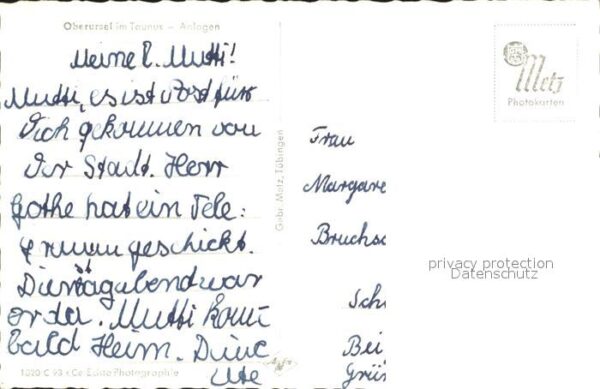 Oberursel im Taunus – Anlagen
Meine l. Mutti!
Mutti, es ist Post für
Dich gekommen von
der Stadt. Herr
Gothe hat ein Tele:
gramm geschickt.
Dienstagabend war
er da. Mutti komm
bald Heim. Deine
Ute
1020 C 98 Echte Photographie
Gebr. Metz, Tübingen
Metz
Photokarten
Frau
Margare
Bruchsa
Sch
Bei
Grü
privacy protection
Datenschutz